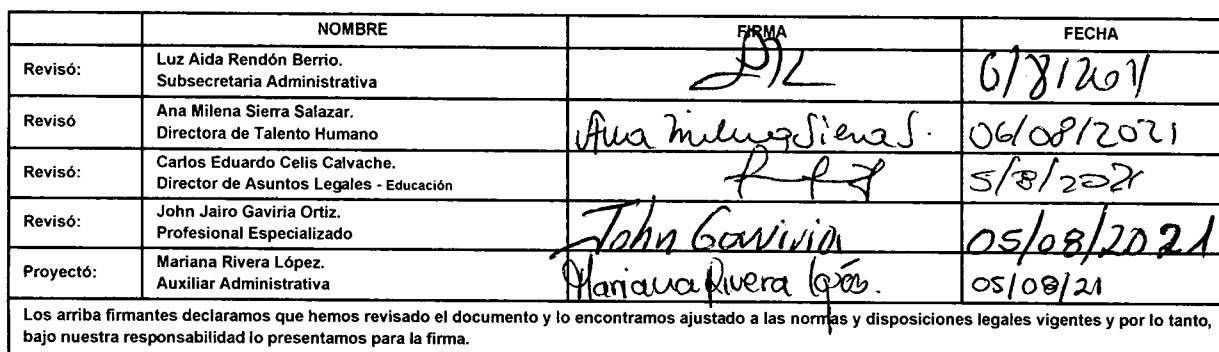 NOMBRE FIRMA FECHA
Revisó: Luz Aida Rendón Berrio.
Subsecretaria Administrativa 6/8/2021
Revisó Ana Milena Sierra Salazar.
Directora de Talento Humano Ana Milena Sierra S. 06/08/2021
Revisó: Carlos Eduardo Celis Calvache.
Director de Asuntos Legales - Educación 5/8/2021
Revisó: John Jairo Gaviria Ortiz.
Profesional Especializado John Gaviria 05/08/2021
Proyectó: Mariana Rivera López.
Auxiliar Administrativa Mariana Rivera López. 05/08/21
Los arriba firmantes declaramos que hemos revisado el documento y lo encontramos ajustado a las normas y disposiciones legales vigentes y por lo tanto,
bajo nuestra responsabilidad lo presentamos para la firma.